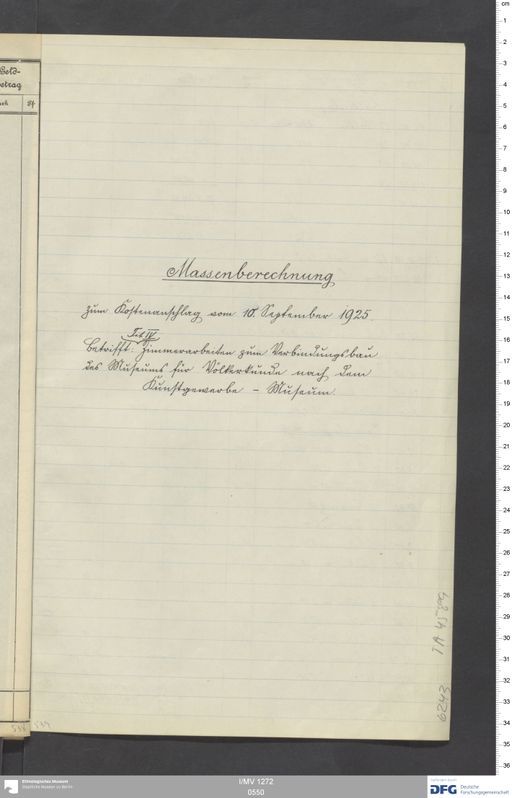 Geld-
betrag
Massenberechnung
zum Kostenanschlag vom 10. September 1925
Tit IV
betrifft: Zimmerarbeiten zum Verbindungsbau
des Museums für Völkerkunde nach dem
Kunstgewerbe - Museum.
I/MV 1272
0550
Ethnologisches Museum
Staatliche Museen zu Berlin
DFG Deutsche
Forschungsgemeinschaft
cm
1
2
3
4
5
6
7
8
9
10
11
12
13
14
15
16
17
18
19
20
21
22
23
24
25
26
27
28
29
30
31
32
33
34
35
36